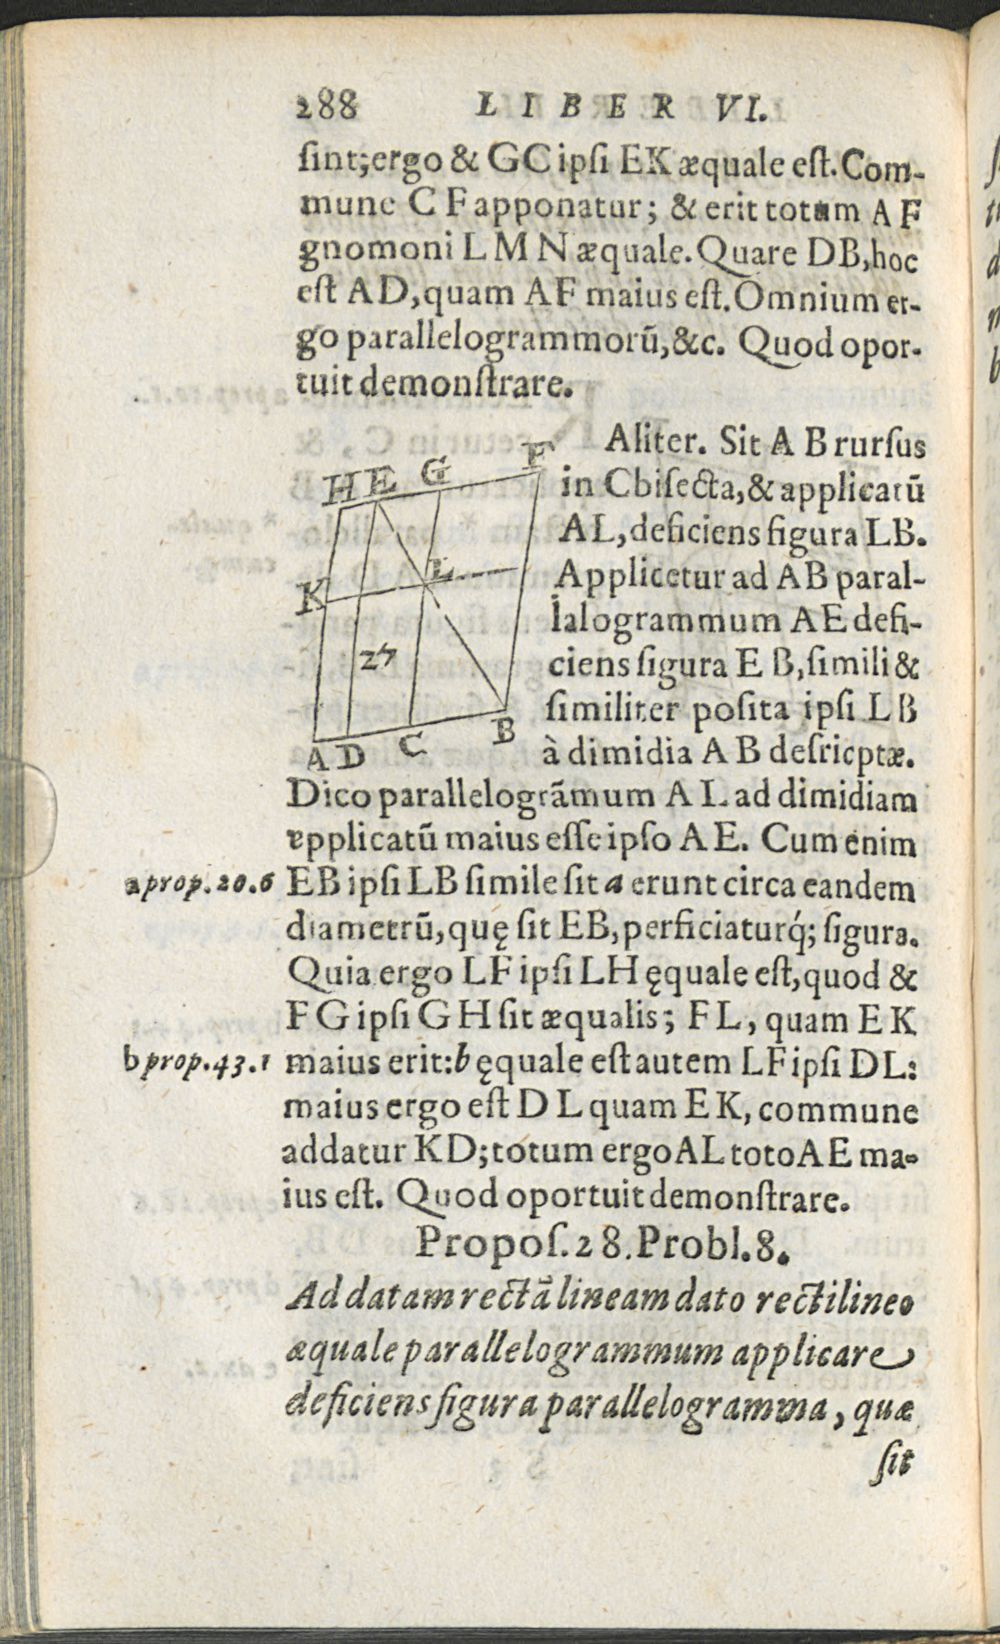 288 LIBER VI.
ſint;ergo & GC ipſi EK æquale eſt. Com-
mune C F apponatur; & erit totum A F
gnomoni L M N æquale. Quare DB, hoc
eſt AD, quam AF maius eſt. Omnium er-
go parallelogrammorũ, &c. Quod opor-
tuit demonſtrare.
Aliter. Sit A B rurſus
in C biſecta, & applicatũ
AL, deficiens figura LB.
Applicetur ad AB paral-
lalogrammum AE defi-
ciens figura E B, ſimili &
ſimiliter poſita ipſi LB
à dimidia A B deſricptæ.
H E G F
K L
27
A D C B
Dico parallelogrãmum A L ad dimidiam
epplicatũ maius eſſe ipſo A E. Cum enim
a prop. 20. 6 EB ipſi LB ſimile ſit a erunt circa eandem
diametrũ, quę ſit EB, perficiaturq́; figura.
Quia ergo LF ipſi LH ęquale eſt, quod &
F G ipſi G H ſit æqualis; F L, quam E K
b prop. 43. 1 maius erit: b ęquale eſt autem LF ipſi DL:
maius ergo eſt D L quam E K, commune
addatur KD; totum ergo AL toto AE ma-
ius eſt. Quod oportuit demonſtrare.
Propoſ. 28. Probl. 8.
Ad datam rectã lineam dato rectilineo
æquale parallelogrammum applicare
deficiens figura parallelogramma, quæ
ſit